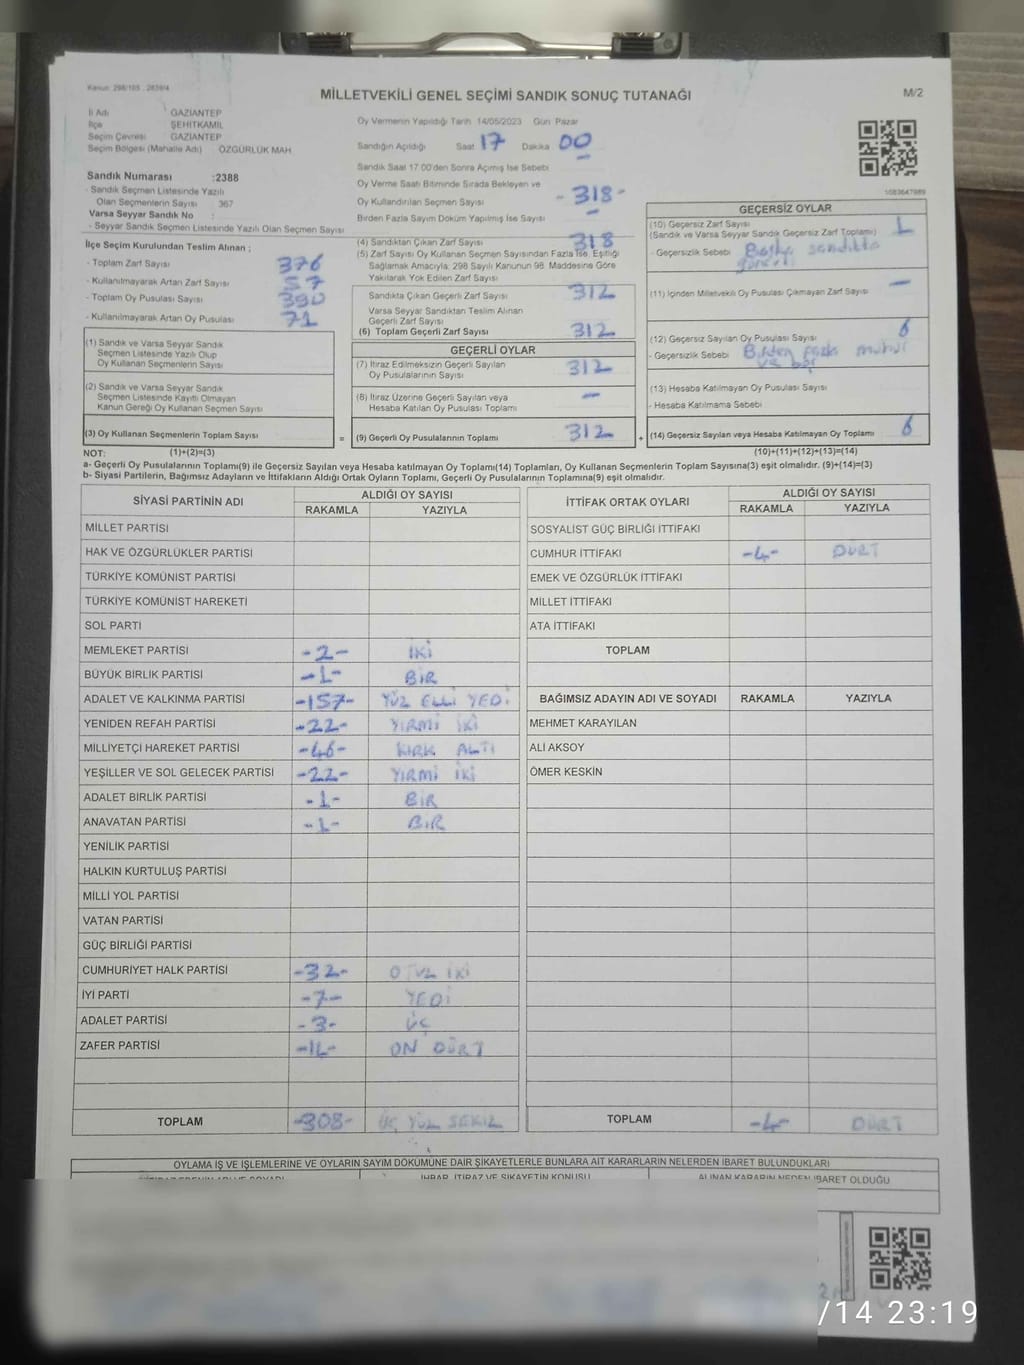 Kanun: 298/105 . 2839/4
MİLLETVEKİLİ GENEL SEÇİMİ SANDIK SONUÇ TUTANAĞI
M/2
İl Adı : GAZİANTEP
İlçe ŞEHİTKAMİL
Seçim Çevresi GAZİANTEP
Seçim Bölgesi (Mahalle Adı) ÖZGÜRLÜK MAH.
Oy Vermenin Yapıldığı Tarih 14/05/2023 Gün Pazar
Sandığın Açıldığı Saat 17 Dakika 00
Sandık Saat 17:00'den Sonra Açılmış İse Sebebi
Oy Verme Saati Bitiminde Sırada Bekleyen ve
Oy Kullandırılan Seçmen Sayısı -318-
Birden Fazla Sayım Döküm Yapılmış İse Sayısı -
Sandık Numarası :2388
- Sandık Seçmen Listesinde Yazılı
Olan Seçmenlerin Sayısı : 367
Varsa Seyyar Sandık No :
- Seyyar Sandık Seçmen Listesinde Yazılı Olan Seçmen Sayısı
İlçe Seçim Kurulundan Teslim Alınan ;
- Toplam Zarf Sayısı 376
- Kullanılmayarak Artan Zarf Sayısı 57
- Toplam Oy Pusulası Sayısı 390
- Kullanılmayarak Artan Oy Pusulası 71
(1) Sandık ve Varsa Seyyar Sandık
Seçmen Listesinde Yazılı Olup
Oy Kullanan Seçmenlerin Sayısı
(2) Sandık ve Varsa Seyyar Sandık
Seçmen Listesinde Kayıtlı Olmayan
Kanun Gereği Oy Kullanan Seçmen Sayısı
(3) Oy Kullanan Seçmenlerin Toplam Sayısı
(4) Sandıktan Çıkan Zarf Sayısı 318
(5) Zarf Sayısı Oy Kullanan Seçmen Sayısından Fazla İse, Eşitliği
Sağlamak Amacıyla, 298 Sayılı Kanunun 98. Maddesine Göre
Yakılarak Yok Edilen Zarf Sayısı
Sandıkta Çıkan Geçerli Zarf Sayısı 312
Varsa Seyyar Sandıktan Teslim Alınan
Geçerli Zarf Sayısı
(6) Toplam Geçerli Zarf Sayısı 312
GEÇERLİ OYLAR
(7) İtiraz Edilmeksizin Geçerli Sayılan
Oy Pusulalarının Sayısı 312
(8) İtiraz Üzerine Geçerli Sayılan veya
Hesaba Katılan Oy Pusulası Toplamı -
= (9) Geçerli Oy Pusulalarının Toplamı 312 +
1083647989
GEÇERSİZ OYLAR
(10) Geçersiz Zarf Sayısı
(Sandık ve Varsa Seyyar Sandık Geçersiz Zarf Toplamı) 1
- Geçersizlik Sebebi Başka sandıkta
(11) İçinden Milletvekili Oy Pusulası Çıkmayan Zarf Sayısı -
(12) Geçersiz Sayılan Oy Pusulası Sayısı 6
- Geçersizlik Sebebi Birden fazla mühür
ve boş
(13) Hesaba Katılmayan Oy Pusulası Sayısı
- Hesaba Katılmama Sebebi
(14) Geçersiz Sayılan veya Hesaba Katılmayan Oy Toplamı 6
NOT: (1)+(2)=(3)
(10)+(11)+(12)+(13)=(14)
a- Geçerli Oy Pusulalarının Toplamı(9) ile Geçersiz Sayılan veya Hesaba katılmayan Oy Toplamı(14) Toplamları, Oy Kullanan Seçmenlerin Toplam Sayısına(3) eşit olmalıdır. (9)+(14)=(3)
b- Siyasi Partilerin, Bağımsız Adayların ve İttifakların Aldığı Ortak Oyların Toplamı, Geçerli Oy Pusulalarının Toplamına(9) eşit olmalıdır.
SİYASİ PARTİNİN ADI
ALDIĞI OY SAYISI
RAKAMLA YAZIYLA
MİLLET PARTİSİ
HAK VE ÖZGÜRLÜKLER PARTİSİ
TÜRKİYE KOMÜNİST PARTİSİ
TÜRKİYE KOMÜNİST HAREKETİ
SOL PARTİ
MEMLEKET PARTİSİ -2- İKİ
BÜYÜK BİRLİK PARTİSİ -1- BİR
ADALET VE KALKINMA PARTİSİ -157- YÜZ ELLİ YEDİ
YENİDEN REFAH PARTİSİ -22- YIRMİ İKİ
MİLLİYETÇİ HAREKET PARTİSİ -46- KIRK ALTI
YEŞİLLER VE SOL GELECEK PARTİSİ -22- YIRMİ İKİ
ADALET BİRLİK PARTİSİ -1- BİR
ANAVATAN PARTİSİ -1- BİR
YENİLİK PARTİSİ
HALKIN KURTULUŞ PARTİSİ
MİLLİ YOL PARTİSİ
VATAN PARTİSİ
GÜÇ BİRLİĞİ PARTİSİ
CUMHURİYET HALK PARTİSİ -32- OTUZ İKİ
İYİ PARTİ -7- YEDİ
ADALET PARTİSİ -3- ÜÇ
ZAFER PARTİSİ -14- ON DÖRT
TOPLAM -308- ÜÇ YÜZ SEKİZ
İTTİFAK ORTAK OYLARI
ALDIĞI OY SAYISI
RAKAMLA YAZIYLA
SOSYALİST GÜÇ BİRLİĞİ İTTİFAKI
CUMHUR İTTİFAKI -4- DÖRT
EMEK VE ÖZGÜRLÜK İTTİFAKI
MİLLET İTTİFAKI
ATA İTTİFAKI
TOPLAM
BAĞIMSIZ ADAYIN ADI VE SOYADI RAKAMLA YAZIYLA
MEHMET KARAYILAN
ALİ AKSOY
ÖMER KESKİN
TOPLAM -4- DÖRT
OYLAMA İŞ VE İŞLEMLERİNE VE OYLARIN SAYIM DÖKÜMÜNE DAİR ŞİKAYETLERLE BUNLARA AİT KARARLARIN NELERDEN İBARET BULUNDUKLARI
İHBAR, İTİRAZ VE ŞİKAYETİN KONUSU ALINAN KARARIN NEDEN İBARET OLDUĞU
/14 23:19